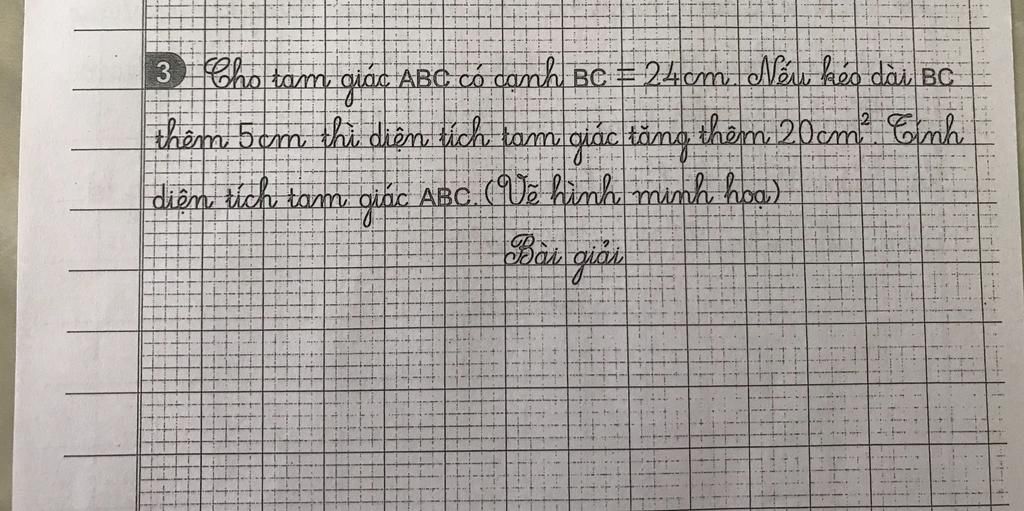 3 Cho tam giác ABC có cạnh BC = 24cm. Nếu kéo dài BC
thêm 5cm thì diện tích tam giác tăng thêm 20cm². Tính
diện tích tam giác ABC. (Vẽ hình minh hoạ)
Bài giải